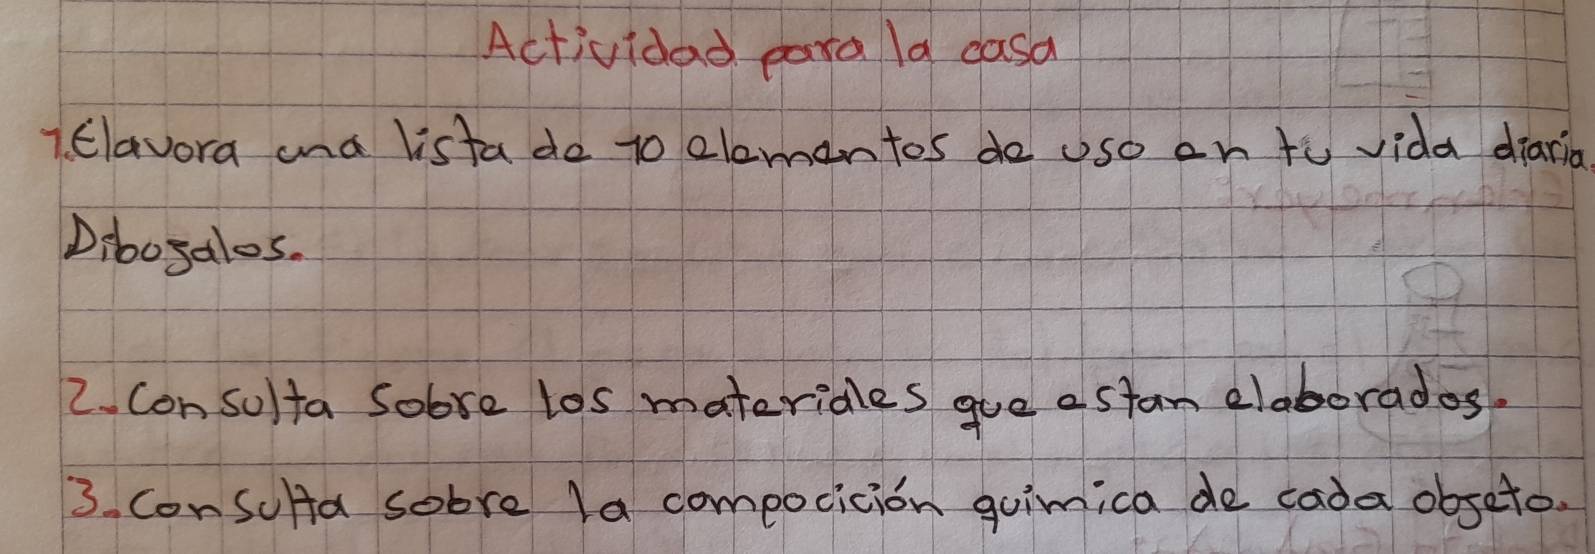 Actividad para la casa
1. Elavora una lista de 10 elementos de uso en tu vida diaria.
Dibogalos.
2. Consulta sobre los materiales que estan elaborados.
3. Consulta sobre la compocición quimica de cada objeto.